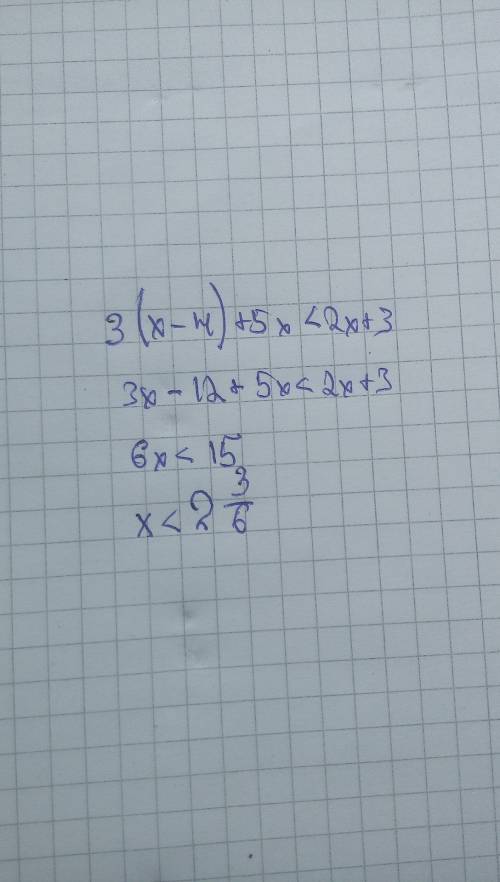 3(x-4)+5x<2x+3
3x-12+5x<2x+3
6x<15
x<2 3/6